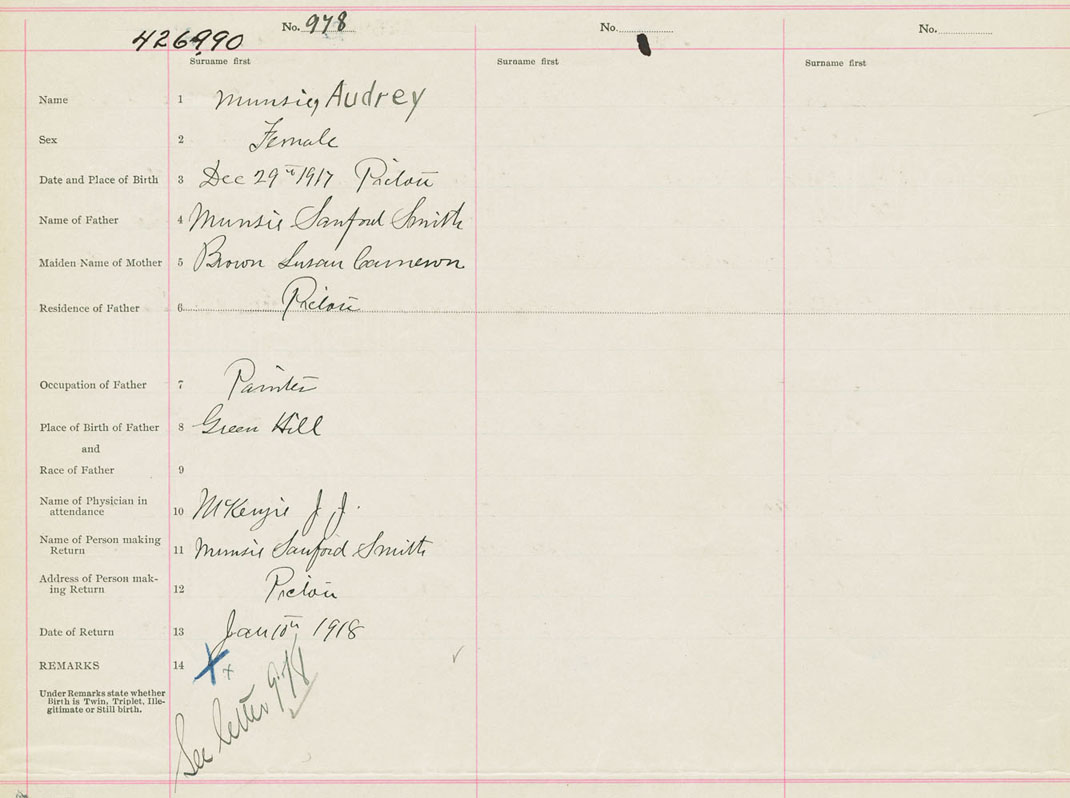 No. 978
No.
No.
426990
Surname first
Surname first
Surname first
Name 1 Munsie, Audrey
Sex 2 Female
Date and Place of Birth 3 Dec 29th 1917 Pictou
Name of Father 4 Munsie Sanford Smith
Maiden Name of Mother 5 Brown Susan Cameron
Residence of Father 6 Pictou
Occupation of Father 7 Painter
Place of Birth of Father 8 Green Hill
and
Race of Father 9
Name of Physician in
attendance 10 McKenzie J. J.
Name of Person making
Return 11 Munsie Sanford Smith
Address of Person mak-
ing Return 12 Pictou
Date of Return 13 Jan 10th 1918
REMARKS 14 X x
Under Remarks state whether
Birth is Twin, Triplet, Ille-
gitimate or Still birth.
See letter 978